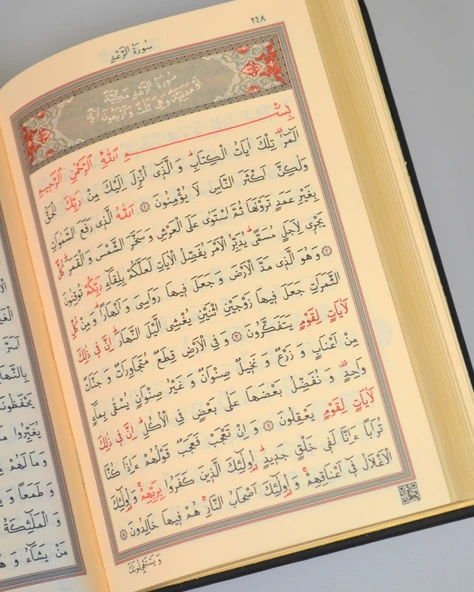 ٢٤٨
سُورَةُ الرَّعْدِ
سُورَةُ الرَّعْدِ مَدَنِيَّةٌ
وَهِيَ ثَلٰثٌ وَاَرْبَعُونَ اٰيَةً
بِسْــــمِ اللّٰهِ الرَّحْمٰنِ الرَّحِيمِ
الٓمٓرٰ تِلْكَ اٰيَاتُ الْكِتَابِ وَالَّذٖٓى اُنْزِلَ اِلَيْكَ مِنْ رَبِّكَ الْحَقُّ
وَلٰكِنَّ اَكْثَرَ النَّاسِ لَا يُؤْمِنُونَ ١ اَللّٰهُ الَّذٖى رَفَعَ السَّمٰوَاتِ
بِغَيْرِ عَمَدٍ تَرَوْنَهَا ثُمَّ اسْتَوٰى عَلَى الْعَرْشِ وَسَخَّرَ الشَّمْسَ وَالْقَمَرَ كُلٌّ
يَجْرٖى لِاَجَلٍ مُسَمًّى يُدَبِّرُ الْاَمْرَ يُفَصِّلُ الْاٰيَاتِ لَعَلَّكُمْ بِلِقَٓاءِ رَبِّكُمْ تُوقِنُونَ
٢ وَهُوَ الَّذٖى مَدَّ الْاَرْضَ وَجَعَلَ فٖيهَا رَوَاسِىَ وَاَنْهَارًا وَمِنْ كُلِّ
الثَّمَرَاتِ جَعَلَ فٖيهَا زَوْجَيْنِ اثْنَيْنِ يُغْشِى الَّيْلَ النَّهَارَ اِنَّ فٖى ذٰلِكَ
لَاٰيَاتٍ لِقَوْمٍ يَتَفَكَّرُونَ ٣ وَفِى الْاَرْضِ قِطَعٌ مُتَجَاوِرَاتٌ وَجَنَّاتٌ
مِنْ اَعْنَابٍ وَزَرْعٌ وَنَخٖيلٌ صِنْوَانٌ وَغَيْرُ صِنْوَانٍ يُسْقٰى بِمَٓاءٍ
وَاحِدٍ وَنُفَضِّلُ بَعْضَهَا عَلٰى بَعْضٍ فِى الْاُكُلِ اِنَّ فٖى ذٰلِكَ
لَاٰيَاتٍ لِقَوْمٍ يَعْقِلُونَ ٤ وَاِنْ تَعْجَبْ فَعَجَبٌ قَوْلُهُمْ ءَاِذَا كُنَّا
تُرَابًا ءَاِنَّا لَفٖى خَلْقٍ جَدٖيدٍ اُولٰٓئِكَ الَّذٖينَ كَفَرُوا بِرَبِّهِمْ وَاُولٰٓئِكَ
الْاَغْلَالُ فٖٓى اَعْنَاقِهِمْ وَاُولٰٓئِكَ اَصْحَابُ النَّارِ هُمْ فٖيهَا خَالِدُونَ ٥
وَيَسْتَعْجِلُونَكَ
بِالنَّهَا
يَحْفَظُونَ
يُغَيِّرُوا مَا
وَمَا لَهُمْ
وَطَمَعًا وَ
وَالْمَلٰٓئِكَةُ
مَنْ يَشَٓاءُ وَهُ